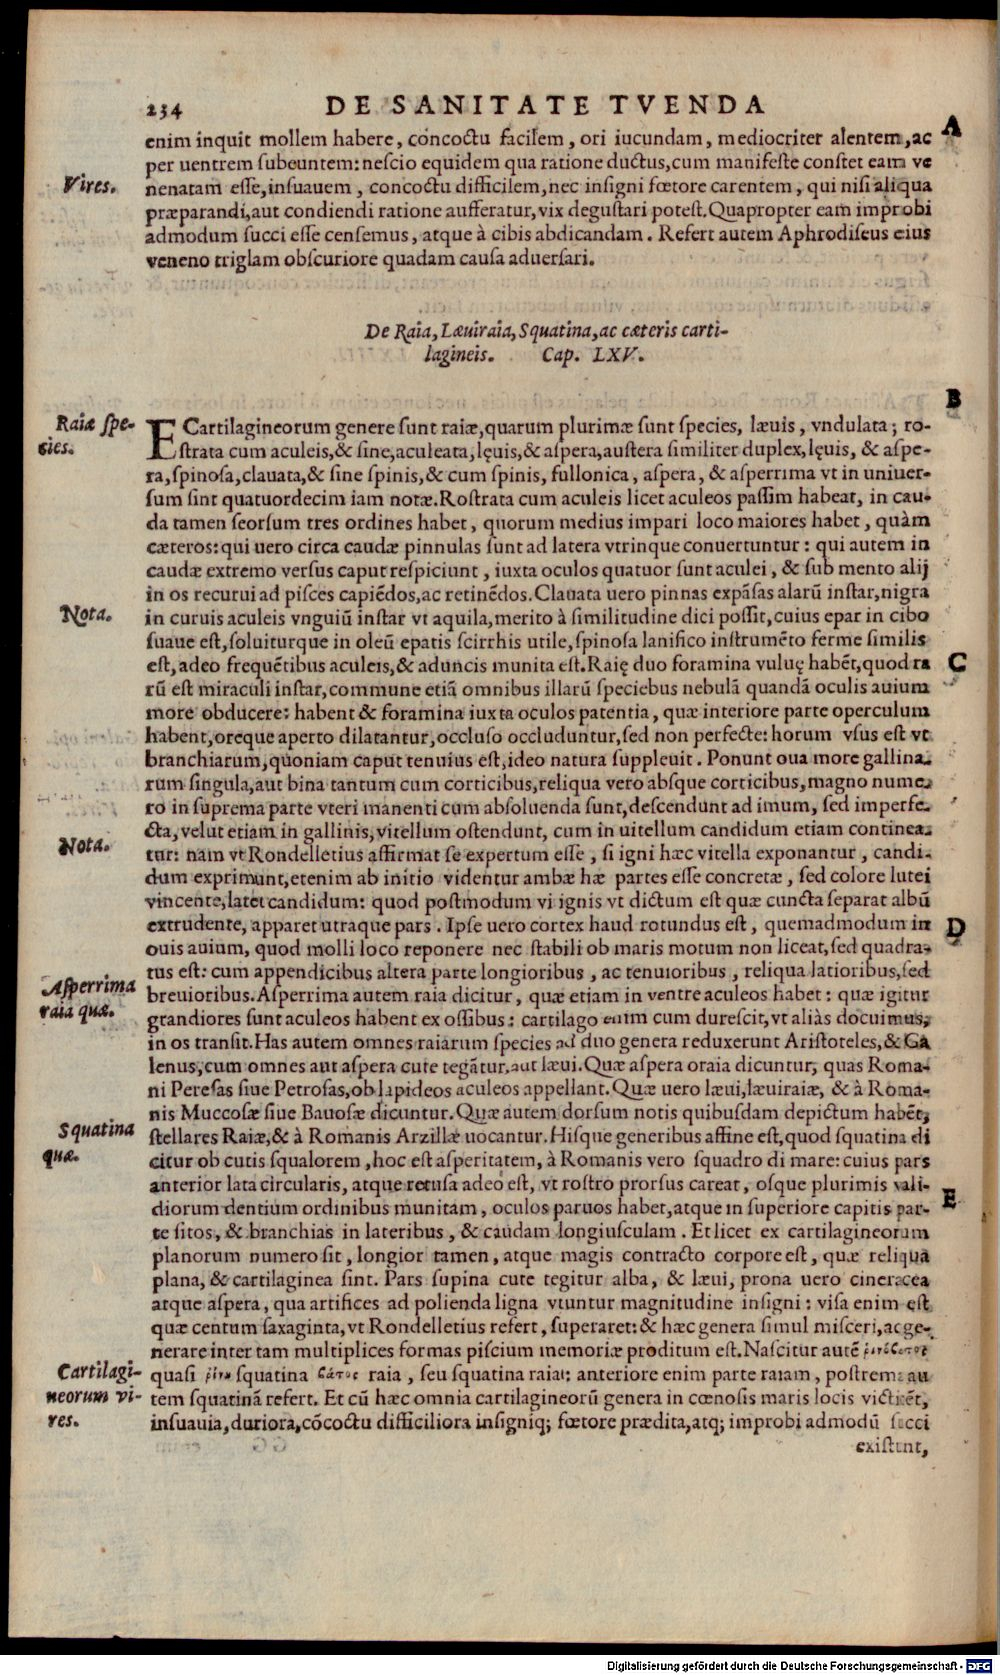 234 DE SANITATE TVENDA
A
enim inquit mollem habere, concoctu facilem, ori iucundam, mediocriter alentem, ac
per uentrem subeuntem: nescio equidem qua ratione ductus, cum manifeste constet eam ve
Vires.
nenatam esse, insuauem, concoctu difficilem, nec insigni fœtore carentem, qui nisi aliqua
præparandi, aut condiendi ratione aufferatur, vix degustari potest. Quapropter eam improbi
admodum succi esse censemus, atque à cibis abdicandam. Refert autem Aphrodiseus eius
veneno triglam obscuriore quadam causa aduersari.
De Raia, Læuiraia, Squatina, ac cæteris carti-
lagineis. Cap. LXV.
B
Raiæ spe-
cies.
E Cartilagineorum genere sunt raiæ, quarum plurimæ sunt species, læuis, vndulata; ro-
strata cum aculeis, & sine, aculeata, lęuis, & aspera, austera similiter duplex, lęuis, & aspe-
ra, spinosa, clauata, & sine spinis, & cum spinis, fullonica, aspera, & asperrima vt in vniuer-
sum sint quatuordecim iam notæ. Rostrata cum aculeis licet aculeos passim habeat, in cau-
da tamen seorsum tres ordines habet, quorum medius impari loco maiores habet, quàm
cæteros: qui uero circa caudæ pinnulas sunt ad latera vtrinque conuertuntur: qui autem in
caudæ extremo versus caput respiciunt, iuxta oculos quatuor sunt aculei, & sub mento alij
in os recurui ad pisces capiẽdos, ac retinẽdos. Clauata uero pinnas expãsas alarũ instar, nigra
Nota.
in curuis aculeis vnguiũ instar vt aquila, merito à similitudine dici possit, cuius epar in cibo
suaue est, soluiturque in oleũ epatis scirrhis utile, spinosa lanifico instrumẽto ferme similis
est, adeo frequẽtibus aculeis, & aduncis munita est. Raię duo foramina vuluę habẽt, quod ra
C
rũ est miraculi instar, commune etiã omnibus illarũ speciebus nebulã quandã oculis auium
more obducere: habent & foramina iuxta oculos patentia, quæ interiore parte operculum
habent, oreque aperto dilatantur, occluso occluduntur, sed non perfecte: horum vsus est vt
branchiarum, quoniam caput tenuius est, ideo natura suppleuit. Ponunt oua more gallina-
rum singula, aut bina tantum cum corticibus, reliqua vero absque corticibus, magno nume-
ro in suprema parte vteri manenti cum absoluenda sunt, descendunt ad imum, sed imperfe-
cta, velut etiam in gallinis, vitellum ostendunt, cum in uitellum candidum etiam continea-
Nota.
tur: nam vt Rondelletius affirmat se expertum esse, si igni hæc vitella exponantur, candi-
dum exprimunt, etenim ab initio videntur ambæ hæ partes esse concretæ, sed colore lutei
vincente, latet candidum: quod postmodum vi ignis vt dictum est quæ cuncta separat albũ
extrudente, apparet utraque pars. Ipse uero cortex haud rotundus est, quemadmodum in
D
ouis auium, quod molli loco reponere nec stabili ob maris motum non liceat, sed quadra-
tus est: cum appendicibus altera parte longioribus, ac tenuioribus, reliqua latioribus, sed
Asperrima
raia quæ.
breuioribus. Asperrima autem raia dicitur, quæ etiam in ventre aculeos habet: quæ igitur
grandiores sunt aculeos habent ex ossibus: cartilago enim cum durescit, vt aliàs docuimus,
in os transit. Has autem omnes raiarum species ad duo genera reduxerunt Aristoteles, & Ga
lenus, cum omnes aut aspera cute tegãtur, aut læui. Quæ aspera oraia dicuntur, quas Roma-
ni Peresas siue Petrosas, ob lapideos aculeos appellant. Quæ uero læui, læuiraiæ, & à Roma-
nis Muccosæ siue Bauosæ dicuntur. Quæ autem dorsum notis quibusdam depictum habẽt,
Squatina
quæ.
stellares Raiæ, & à Romanis Arzillæ uocantur. Hisque generibus affine est, quod squatina di
citur ob cutis squalorem, hoc est asperitatem, à Romanis vero squadro di mare: cuius pars
anterior lata circularis, atque retusa adeo est, vt rostro prorsus careat, osque plurimis vali-
E
diorum dentium ordinibus munitam, oculos paruos habet, atque in superiore capitis par-
te sitos, & branchias in lateribus, & caudam longiusculam. Et licet ex cartilagineorum
planorum numero sit, longior tamen, atque magis contracto corpore est, quæ reliqua
plana, & cartilaginea sint. Pars supina cute tegitur alba, & læui, prona uero cineracea
atque aspera, qua artifices ad polienda ligna vtuntur magnitudine insigni: visa enim est
quæ centum saxaginta, vt Rondelletius refert, superaret: & hæc genera simul misceri, ac ge-
nerare inter tam multiplices formas piscium memoriæ proditum est. Nascitur autẽ ῥινόβατος
Cartilagi-
neorum vi-
res.
quasi ῥίνη squatina βάτος raia, seu squatina raia: anteriore enim parte raiam, postrema au
tem squatinã refert. Et cũ hæc omnia cartilagineorũ genera in cœnosis maris locis victitẽt,
insuauia, duriora, cõcoctu difficiliora insigniq; fœtore prædita, atq; improbi admodũ succi
existunt,
Digitalisierung gefördert durch die Deutsche Forschungsgemeinschaft - DFG